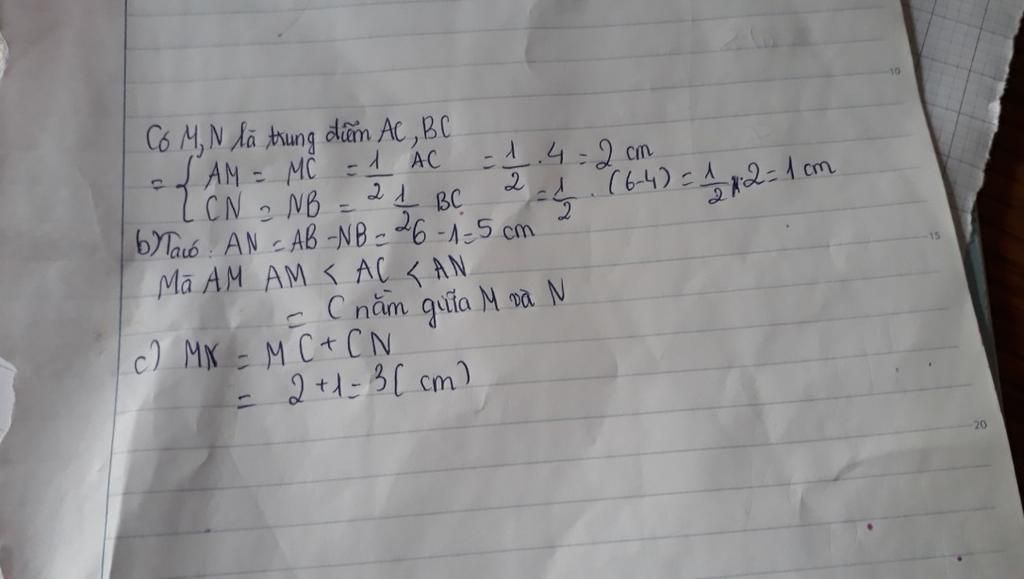 10
Có M,N là trung điểm AC, BC
= { AM = MC = 1/2 AC = 1/2 . 4 = 2 cm
CN = NB = 1/2 BC = 1/2 . (6-4) = 1/2 . 2 = 1 cm
b) Ta có : AN = AB - NB = 6 - 1 = 5 cm
15
Mà AM AM < AC < AN
= C nằm giữa M và N
c) MN = MC + CN
= 2 + 1 = 3 ( cm)
20